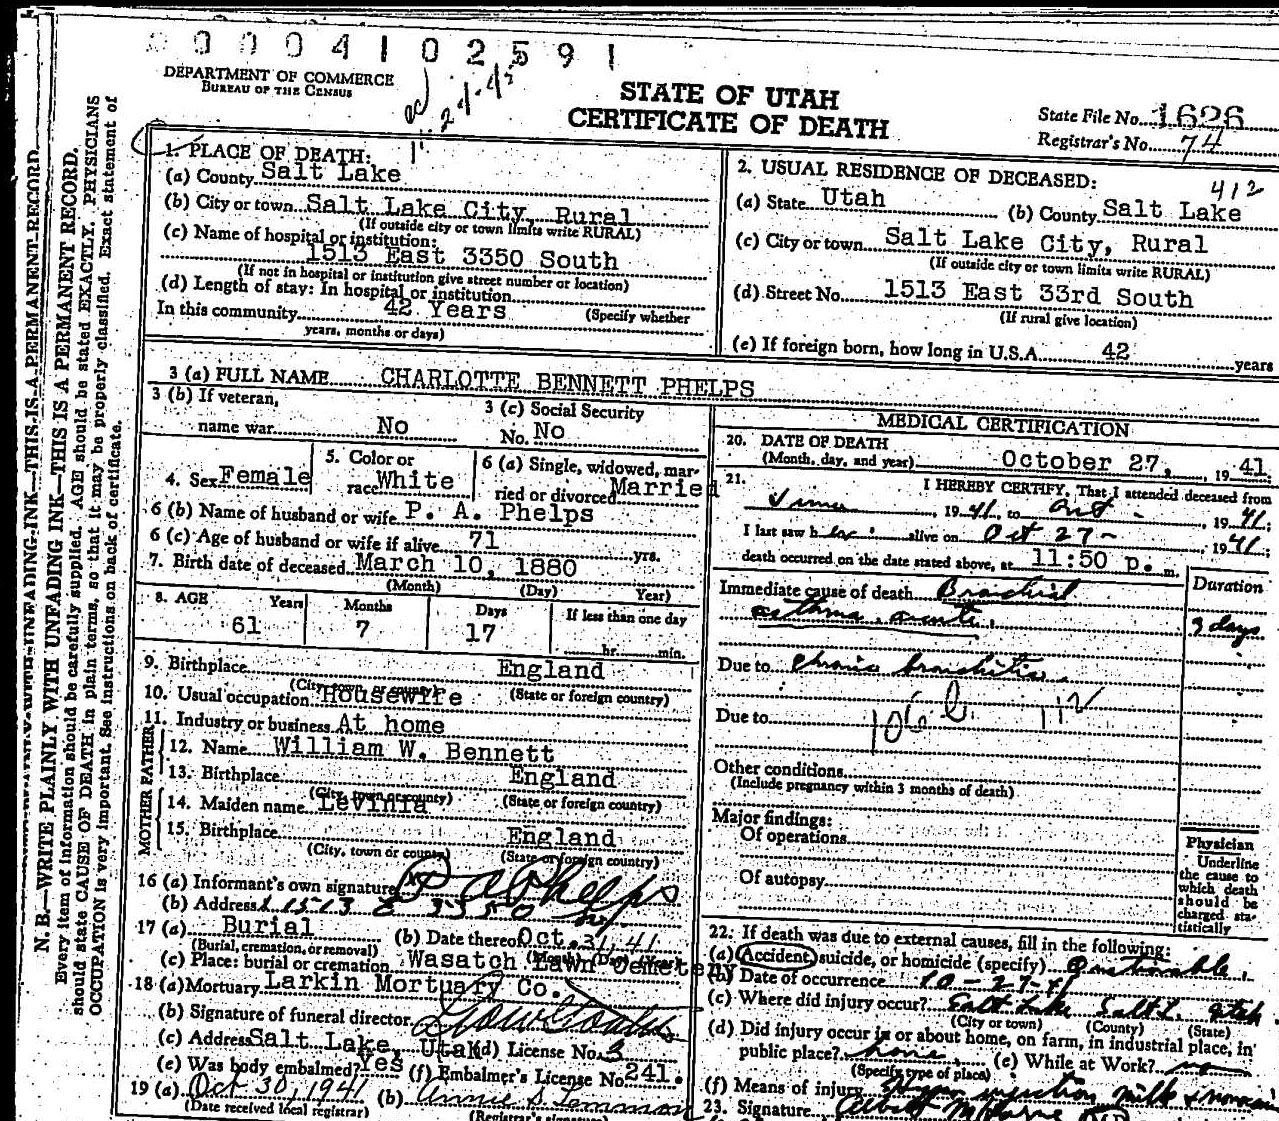 0 0 0 0 4 1 0 2 5 9 1
DEPARTMENT OF COMMERCE
BUREAU OF THE CENSUS
STATE OF UTAH
CERTIFICATE OF DEATH
State File No. 1626
Registrar's No. 74
N. B.—WRITE PLAINLY WITH UNFADING INK—THIS IS A PERMANENT RECORD.
Every item of information should be carefully supplied. AGE should be stated EXACTLY. PHYSICIANS
should state CAUSE OF DEATH in plain terms, so that it may be properly classified. Exact statement of
OCCUPATION is very important. See instructions on back of certificate.
1. PLACE OF DEATH:
(a) County Salt Lake
(b) City or town Salt Lake City, Rural
(If outside city or town limits write RURAL)
(c) Name of hospital or institution:
1513 East 3350 South
(If not in hospital or institution give street number or location)
(d) Length of stay: In hospital or institution
In this community 42 Years (Specify whether
years, months or days)
2. USUAL RESIDENCE OF DECEASED:
412
(a) State Utah (b) County Salt Lake
(c) City or town Salt Lake City, Rural
(If outside city or town limits write RURAL)
(d) Street No. 1513 East 33rd South
(If rural give location)
(e) If foreign born, how long in U.S.A. 42 years
3 (a) FULL NAME CHARLOTTE BENNETT PHELPS
3 (b) If veteran,
name war No
3 (c) Social Security
No. No
4. Sex Female
5. Color or
race White
6 (a) Single, widowed, mar-
ried or divorced Married
6 (b) Name of husband or wife P. A. Phelps
6 (c) Age of husband or wife if alive 71 yrs.
7. Birth date of deceased March 10, 1880
(Month) (Day) Year)
8. AGE Years Months Days If less than one day
61 7 17 hr. min.
9. Birthplace England
(City, town or county) (State or foreign country)
10. Usual occupation Housewife
11. Industry or business At home
FATHER
12. Name William W. Bennett
13. Birthplace England
(City, town or county) (State or foreign country)
MOTHER
14. Maiden name Levinia
15. Birthplace England
(City, town or county) (State or foreign country)
16 (a) Informant's own signature P A Phelps
(b) Address 1513 E 3350 So.
17 (a) Burial (b) Date thereof Oct. 31, 41
(Burial, cremation, or removal) (Month) (Day) (Year)
(c) Place: burial or cremation Wasatch Lawn Cemetery
18 (a) Mortuary Larkin Mortuary Co.
(b) Signature of funeral director
(c) Address Salt Lake, Utah (d) License No. 3
(e) Was body embalmed? Yes (f) Embalmer's License No. 241.
19 (a) Oct 30, 1941 (b) Annie S.
(Date received local registrar) (Registrar's signature)
MEDICAL CERTIFICATION
20. DATE OF DEATH
(Month, day, and year) October 27, 1941
21. I HEREBY CERTIFY, That I attended deceased from
, 1941, to Oct - , 1941;
I last saw her alive on Oct 27 - , 1941;
death occurred on the date stated above, at 11:50 p. m.
Immediate cause of death Bronchial Duration
asthma, acute. 9 days
Due to chronic bronchitis.
Due to 106 b 112
Other conditions
(Include pregnancy within 3 months of death)
Major findings:
Of operations
Of autopsy
Physician
Underline
the cause to
which death
should be
charged sta-
tistically
22. If death was due to external causes, fill in the following:
(a) Accident, suicide, or homicide (specify) Questionable.
(b) Date of occurrence 10-27-41
(c) Where did injury occur? Salt Lake Salt L. Utah
(City or town) (County) (State)
(d) Did injury occur in or about home, on farm, in industrial place, in
public place? home. (e) While at Work? no
(Specify type of place)
(f) Means of injury injection milk
23. Signature Albert